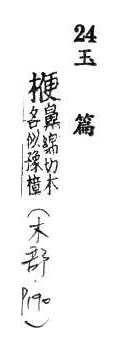 24玉篇
楩鼻縣切木
名似豫樟
(木部·P190)